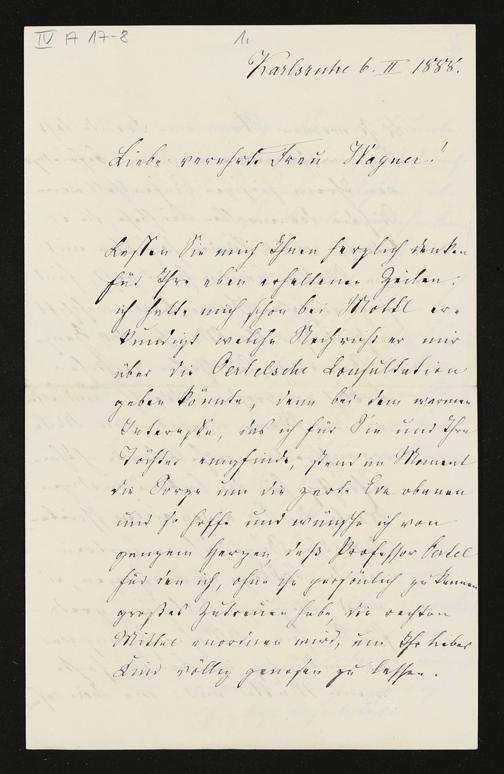 IV A 17-8
1.
Karlsruhe 6. II 1888.
Liebe verehrte Frau Wagner!
Lassen Sie mich Ihnen herzlich danken
für Ihre eben erhaltenen Zeilen;
ich hatte mich schon bei Mottl er-
kundigt welche Nachricht er mir
über die Oertelsche Consultation
geben könnte, denn bei dem warmen
Interesse, das ich für Sie und Ihre
Töchter empfinde, stand im Moment
die Sorge um die zarte Eva obenan
und so hoffe und wünsche ich von
ganzem Herzen, daß Professor Oertel
für den ich, ohne ihn persönlich zu kennen
großes Zutrauen habe, die rechten
Mittel anordnen wird, um Ihr liebes
Kind völlig genesen zu lassen.